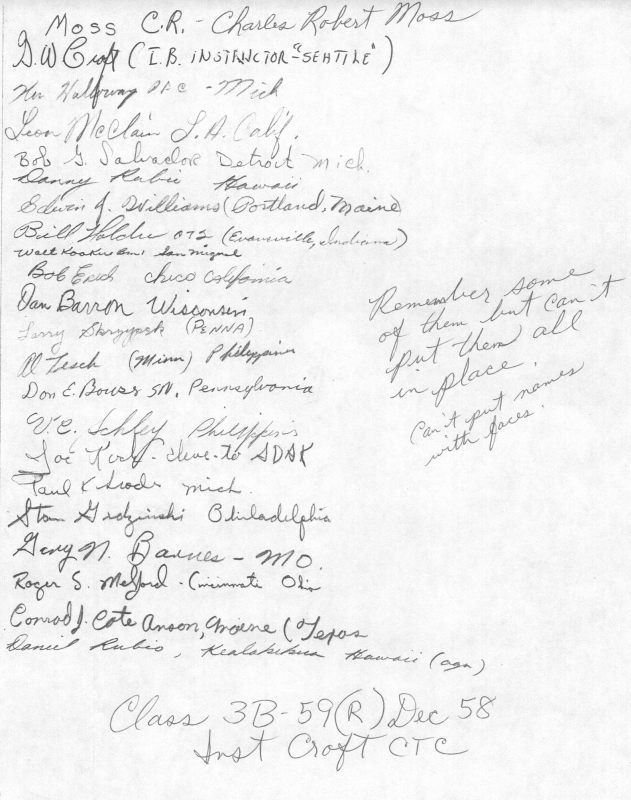 Moss C.R. - Charles Robert Moss
G.W Croft (I.B. INSTRUCTOR-"SEATTLE")
Holloway - Mich
Leon McClain L.A. Calif.
Bob G. Salvador Detroit Mich.
Danny Rubio Hawaii
Edwin J. Williams (Portland, Maine)
Bill Holder (Evansville, Indiana)
Walt San Miguel
Bob Erich chico California
Dan Barron Wisconsin
Larry (PENNA)
Al Lesch (Minn) Philippines
Don E. Bowser SN. Pennsylvania
V.C. Schley Philippines
Joe to ADAK
Paul K mich.
Stan Philadelphia
Gary N. Barnes - MO.
Roger S. - Cincinnati Ohio
Conrad J. Cote Anson, Maine (Texas
Daniel Rubio, Kealakekua Hawaii (agn)
Remember some
of them but can't
put them all
in place.
Can't put names
with faces.
Class 3B-59(R) Dec 58
Inst Croft CTC